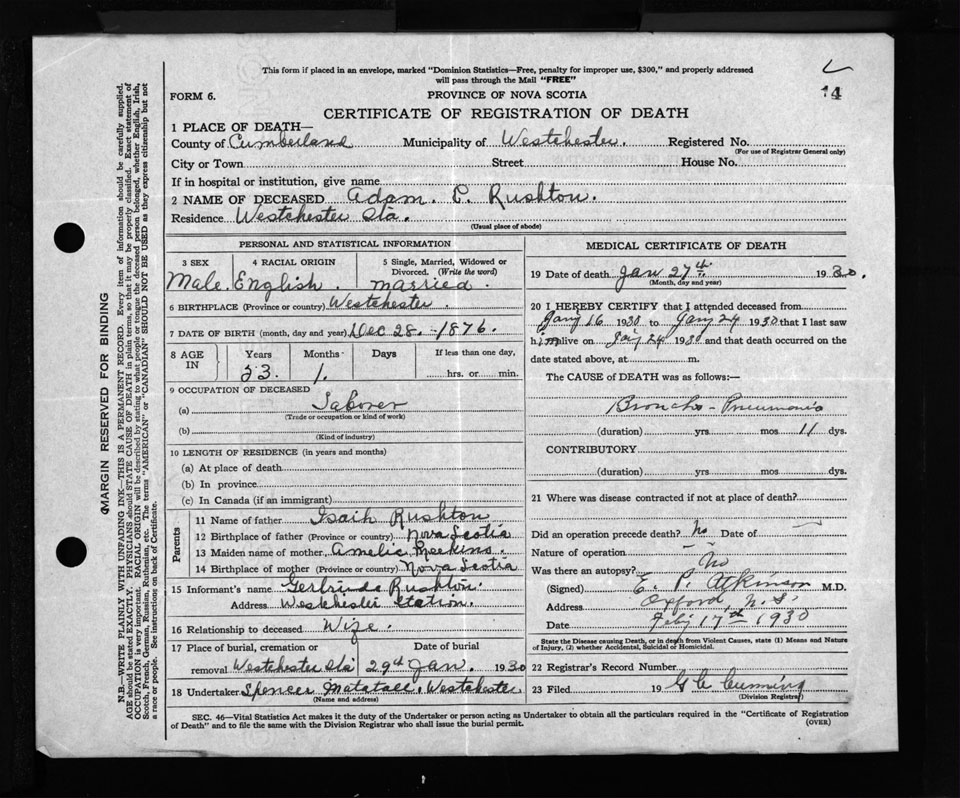 This form if placed in an envelope, marked "Dominion Statistics—Free, penalty for improper use, $300," and properly addressed
will pass through the Mail "FREE"
14
FORM 6.
PROVINCE OF NOVA SCOTIA
CERTIFICATE OF REGISTRATION OF DEATH
1 PLACE OF DEATH—
County of Cumberland Municipality of Westchester. Registered No.
(For use of Registrar General only)
City or Town Street House No.
If in hospital or institution, give name
2 NAME OF DECEASED Adam. C. Rushton.
Residence Westchester Sta.
(Usual place of abode)
PERSONAL AND STATISTICAL INFORMATION
3 SEX 4 RACIAL ORIGIN 5 Single, Married, Widowed or Divorced. (Write the word)
Male. English. married.
6 BIRTHPLACE (Province or country) Westchester.
7 DATE OF BIRTH (month, day and year) Dec 28. -1876.
8 AGE IN Years Months Days If less than one day,
53. 1. hrs. or min.
9 OCCUPATION OF DECEASED
(a) Laborer
(Trade or occupation or kind of work)
(b)
(Kind of industry)
10 LENGTH OF RESIDENCE (in years and months)
(a) At place of death
(b) In province
(c) In Canada (if an immigrant)
Parents
11 Name of father Isaih Rushton
12 Birthplace of father (Province or country) Nova Scotia
13 Maiden name of mother Amelia Meekins.
14 Birthplace of mother (Province or country) Nova Scotia
15 Informant's name Gertrude Rushton.
Address Westchester Station.
16 Relationship to deceased Wife.
17 Place of burial, cremation or removal Date of burial
Westchester Sta 29th Jan. 1930
18 Undertaker Spencer Matatall. Westchester
(Name and address)
MEDICAL CERTIFICATE OF DEATH
19 Date of death Jan 27th 1930.
(Month, day and year)
20 I HEREBY CERTIFY that I attended deceased from
Jany 16 1930 to Jany 24 1930 that I last saw
him alive on Jany 24 1930 and that death occurred on the
date stated above, at m.
The CAUSE of DEATH was as follows:—
Broncho-Pneumonia
(duration) yrs mos 11 dys.
CONTRIBUTORY
(duration) yrs mos dys.
21 Where was disease contracted if not at place of death?
Did an operation precede death? No Date of
Nature of operation
Was there an autopsy? No
(Signed) E. P. Atkinson M.D.
Address Oxford N.S.
Date Feby 17th 1930
State the Disease causing Death, or in death from Violent Causes, state (1) Means and Nature
of Injury, (2) whether Accidental, Suicidal or Homicidal.
22 Registrar's Record Number
23 Filed 19 G C Cumming
(Division Registrar)
SEC. 46—Vital Statistics Act makes it the duty of the Undertaker or person acting as Undertaker to obtain all the particulars required in the "Certificate of Registration
of Death" and to file the same with the Division Registrar who shall issue the burial permit. (OVER)
MARGIN RESERVED FOR BINDING
N.B.—WRITE PLAINLY WITH UNFADING INK—THIS IS A PERMANENT RECORD. Every item of information should be carefully supplied.
AGE should be stated EXACTLY. PHYSICIANS should STATE CAUSE OF DEATH in plain terms, so that it may be properly classified. Exact statement of
OCCUPATION is very important. RACIAL ORIGIN will be described by stating to what people or tongue the deceased person belonged, whether English, Irish,
Scotch, French, German, Russian, Ruthenian, etc. The terms "AMERICAN" or "CANADIAN" SHOULD NOT BE USED as they express citizenship but not
a race or people. See instructions on back of Certificate.